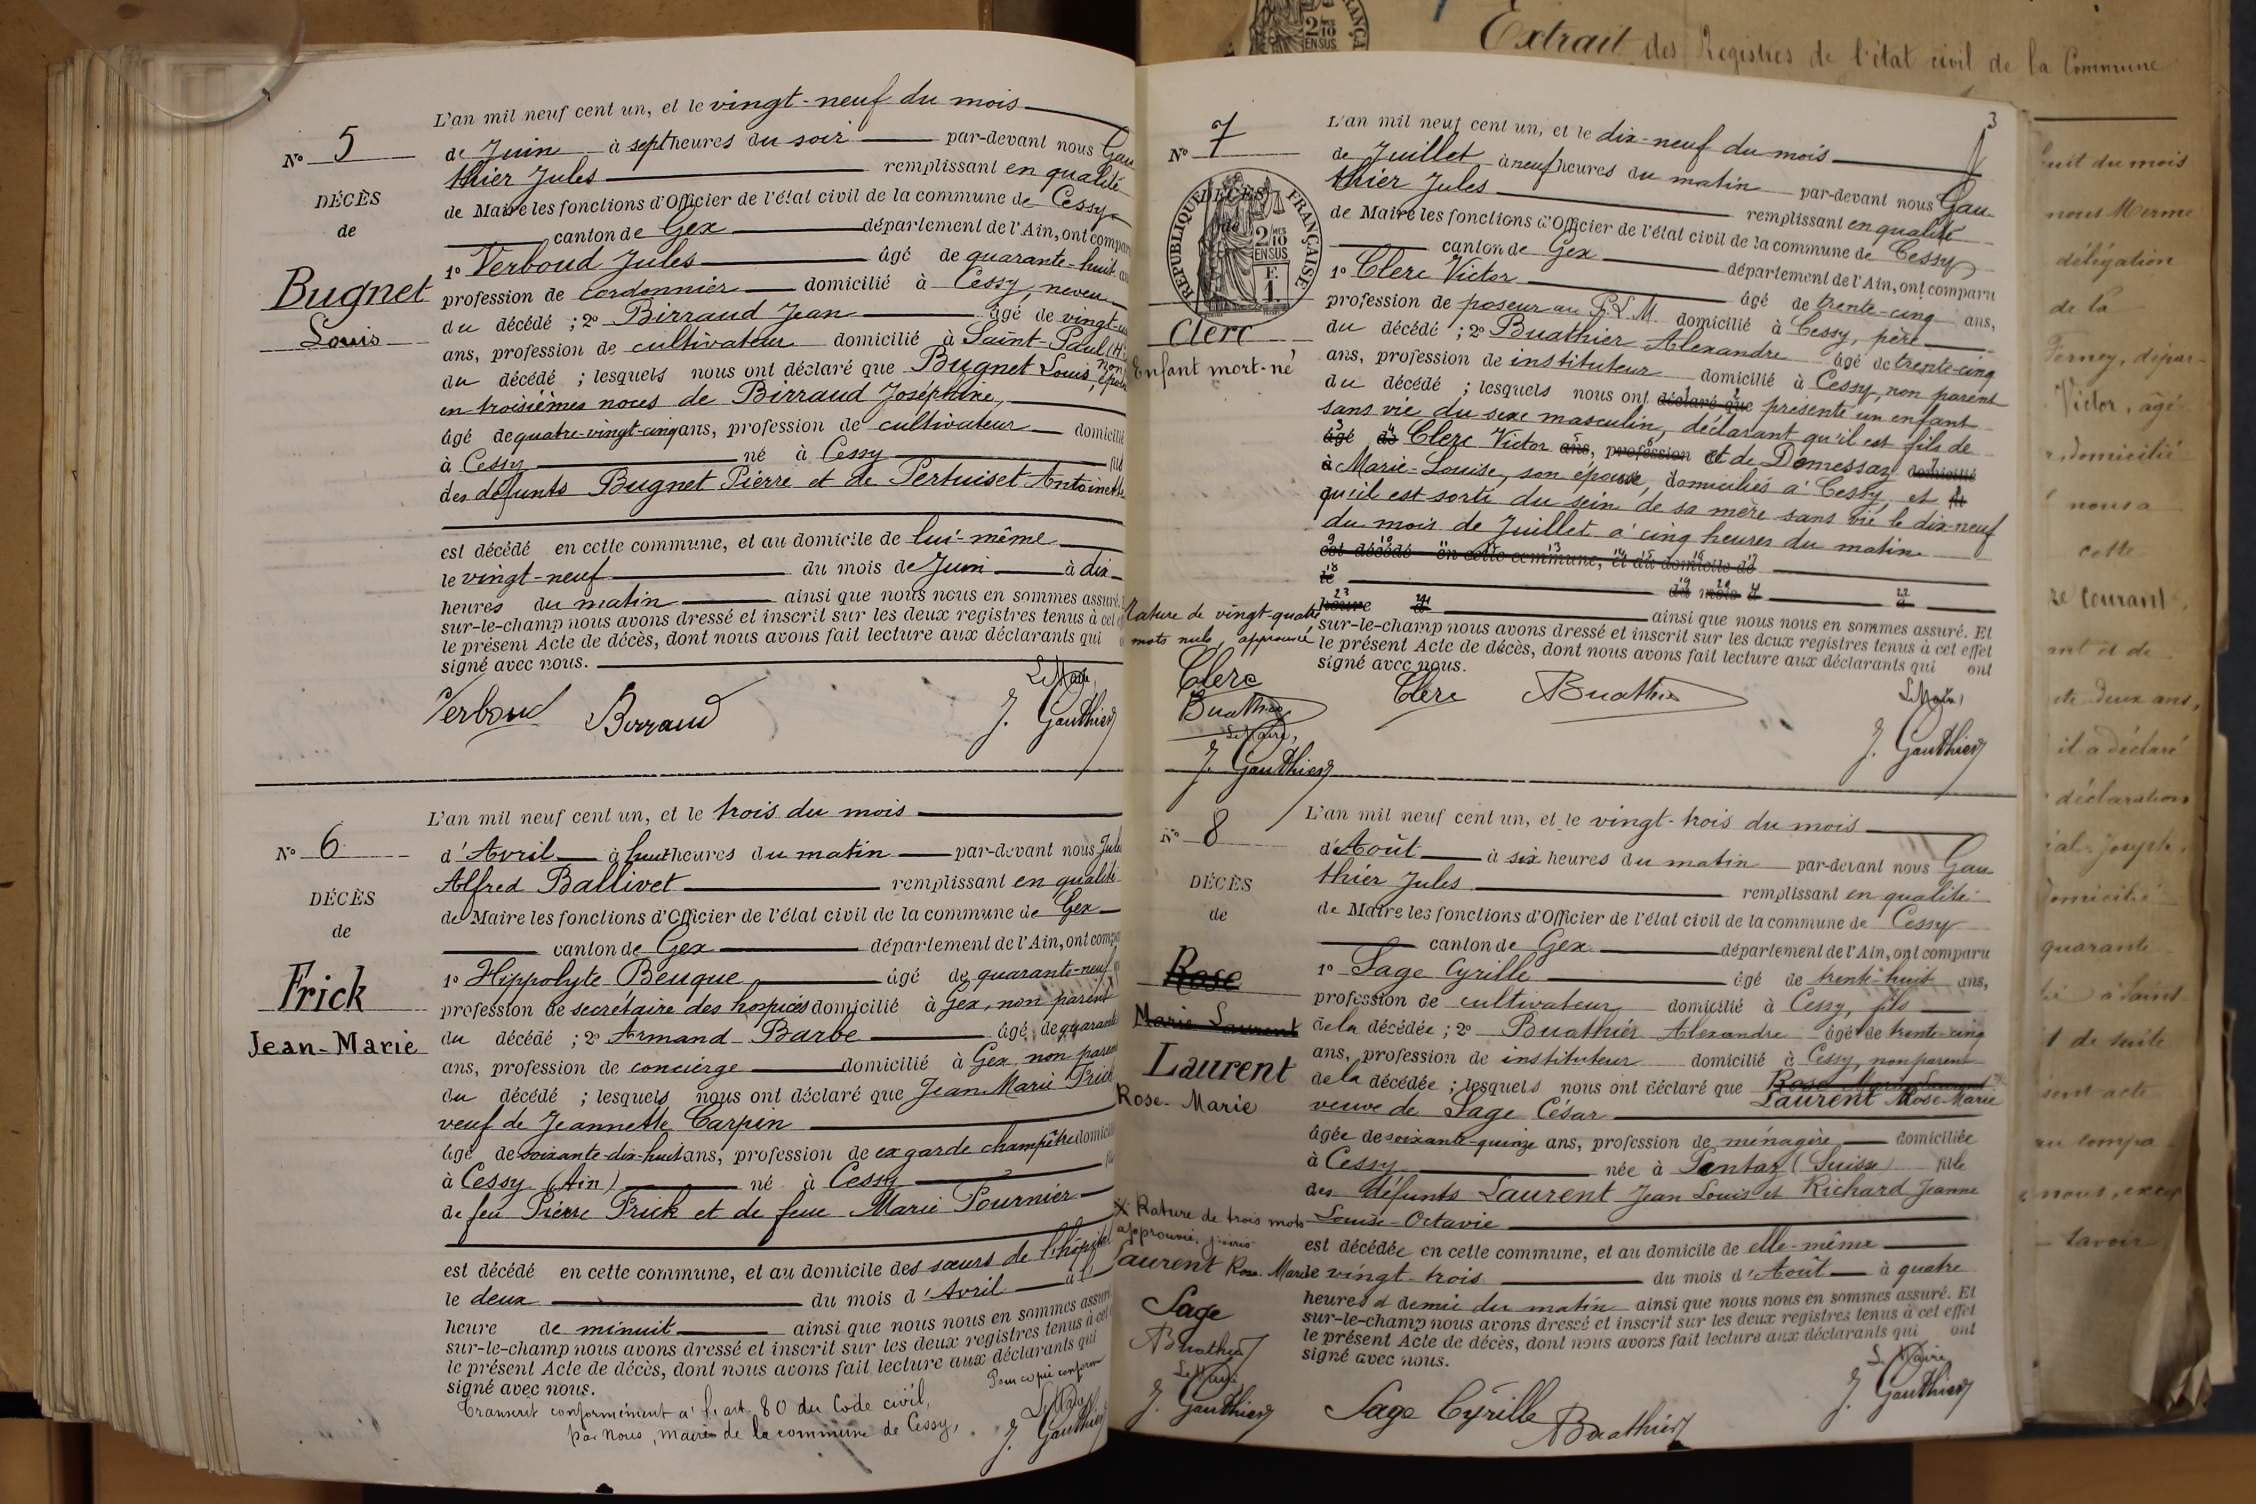 N° 5
DÉCÈS
de
Bugnet
Louis
L'an mil neuf cent un, et le vingt-neuf du mois
de Juin à sept heures du soir par-devant nous Gau
thier Jules remplissant en qualité
de Maire les fonctions d'Officier de l'état civil de la commune de Cessy
canton de Gex département de l'Ain, ont compar
1° Verboud Jules âgé de quarante-huit
profession de cordonnier domicilié à Cessy, neveu
du décédé ; 2° Birraud Jean âgé de vingt-
ans, profession de cultivateur domicilié à Saint-Paul
du décédé ; lesquels nous ont déclaré que Bugnet Louis,
en troisièmes noces de Birraud Joséphine,
âgé de quatre-vingt-cinq ans, profession de cultivateur domicilié
à Cessy né à Cessy
des défunts Bugnet Pierre et de Pertuiset Antoinette
est décédé en cette commune, et au domicile de lui-même
le vingt-neuf du mois de Juin à dix
heures du matin ainsi que nous nous en sommes assuré.
sur-le-champ nous avons dressé et inscrit sur les deux registres tenus à cet
le présent Acte de décès, dont nous avons fait lecture aux déclarants qui
signé avec nous.
Le Maire,
Verboud Birraud J. Gauthier
N° 6
DÉCÈS
de
Frick
Jean-Marie
L'an mil neuf cent un, et le trois du mois
d'Avril à huit heures du matin par-devant nous Jule
Alfred Ballivet remplissant en qualité
de Maire les fonctions d'Officier de l'état civil de la commune de Gex
canton de Gex département de l'Ain, ont comp
1° Hippolyte Beuque âgé de quarante-neuf
profession de secrétaire des hospices domicilié à Gex, non parent
du décédé ; 2° Armand Barbe âgé de quarante
ans, profession de concierge domicilié à Gex non paren
du décédé ; lesquels nous ont déclaré que Jean Marie Frick
veuf de Jeannette Carpin
âgé de soixante-dix-huit ans, profession de ex garde champêtre domicil
à Cessy (Ain) né à Cessy
de feu Pierre Frick et de feue Marie Fournier
est décédé en cette commune, et au domicile des sœurs de l'hôpital
le deux du mois d'Avril à l'
heure de minuit ainsi que nous nous en sommes assuré
sur-le-champ nous avons dressé et inscrit sur les deux registres tenus à cet
le présent Acte de décès, dont nous avons fait lecture aux déclarants qui
signé avec nous.
Pour copie conforme
Transcrit conformément à l'art. 80 du Code civil,
par nous, maire de la commune de Cessy,
Le Maire
J. Gauthier
3
N° 7
DÉCÈS
de
RÉPUBLIQUE FRANÇAISE
2/10 EN SUS
Clerc
Enfant mort-né
L'an mil neuf cent un, et le dix-neuf du mois
de Juillet à neuf heures du matin par-devant nous Gau
thier Jules remplissant en qualité
de Maire les fonctions d'Officier de l'état civil de la commune de Cessy
canton de Gex département de l'Ain, ont comparu
1° Clerc Victor âgé de trente-cinq ans,
profession de poseur au P.L.M. domicilié à Cessy, père
du décédé ; 2° Buathier Alexandre âgé de trente-cinq
ans, profession de instituteur domicilié à Cessy, non parent
du décédé ; lesquels nous ont déclaré que présenté un enfant
sans vie du sexe masculin, déclarant qu'il est fils de
âgé de Clerc Victor ans, profession et de Domessaz domicilié
à Marie-Louise, son épouse, domiciliés à Cessy, et
qu'il est sorti du sein de sa mère sans vie le dix-neuf
du mois de Juillet à cinq heures du matin
est décédé en cette commune, et au domicile de
le du mois d à
heure d ainsi que nous nous en sommes assuré. Et
sur-le-champ nous avons dressé et inscrit sur les deux registres tenus à cet effet
le présent Acte de décès, dont nous avons fait lecture aux déclarants qui ont
signé avec nous.
Rature de vingt-quatre
mots nuls, approuvé
Clerc
Buathier
Le Maire,
J. Gauthier
Clerc Buathier
Le Maire,
J. Gauthier
N° 8
DÉCÈS
de
Rose
Marie Laurent
Laurent
Rose-Marie
L'an mil neuf cent un, et le vingt-trois du mois
d'Août à six heures du matin par-devant nous Gau
thier Jules remplissant en qualité
de Maire les fonctions d'Officier de l'état civil de la commune de Cessy
canton de Gex département de l'Ain, ont comparu
1° Sage Cyrille âgé de trente-huit ans,
profession de cultivateur domicilié à Cessy, fils
de la décédée ; 2° Buathier Alexandre âgé de trente-cinq
ans, profession de instituteur domicilié à Cessy, non parent
de la décédée ; lesquels nous ont déclaré que Rose Marie Laurent
Laurent Rose Marie
veuve de Sage César
âgée de soixante-quinze ans, profession de ménagère domiciliée
à Cessy née à (Suisse) fille
des défunts Laurent Jean Louis et Richard Jeanne
Louise-Octavie
est décédée en cette commune, et au domicile de elle-même
le vingt-trois du mois d'Août à quatre
heures et demie du matin ainsi que nous nous en sommes assuré. Et
sur-le-champ nous avons dressé et inscrit sur les deux registres tenus à cet effet
le présent Acte de décès, dont nous avons fait lecture aux déclarants qui ont
signé avec nous.
X Rature de trois mots
approuvée
Laurent Rose Marie
Sage
Buathier
Le Maire
J. Gauthier
Sage Cyrille Buathier
Le Maire
J. Gauthier
Extrait des Registres de l'état civil de la Commune
2/10 EN SUS
huit du mois
nous Merme
délégation
de la
Ferney, dépar-
Victor, âgé
domicilié
nous a
cette
re courant,
ant et de
te deux ans,
il a déclaré
déclaration
domicilié
quarante
à Saint
t de suite
sent acte
au compa
nous, excep